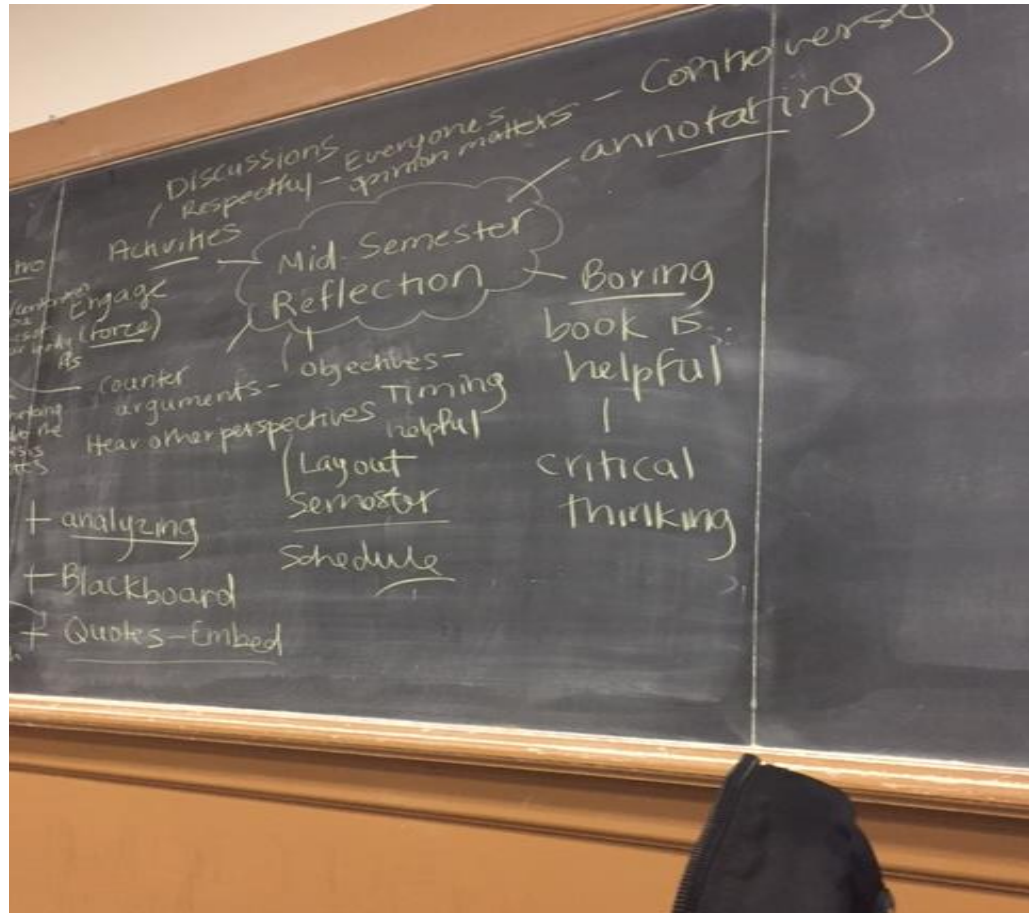 Discussions
Respectful - Everyones - Controversy
opinion matters
annotating
Activities
Mid-Semester
Reflection
Engage
(force)
Boring
book is
helpful
critical
thinking
counter
arguments -
Hear other perspectives
objectives -
Timing
helpful
Layout
Semester
Schedule
+ analyzing
+ Blackboard
+ Quotes - Embed